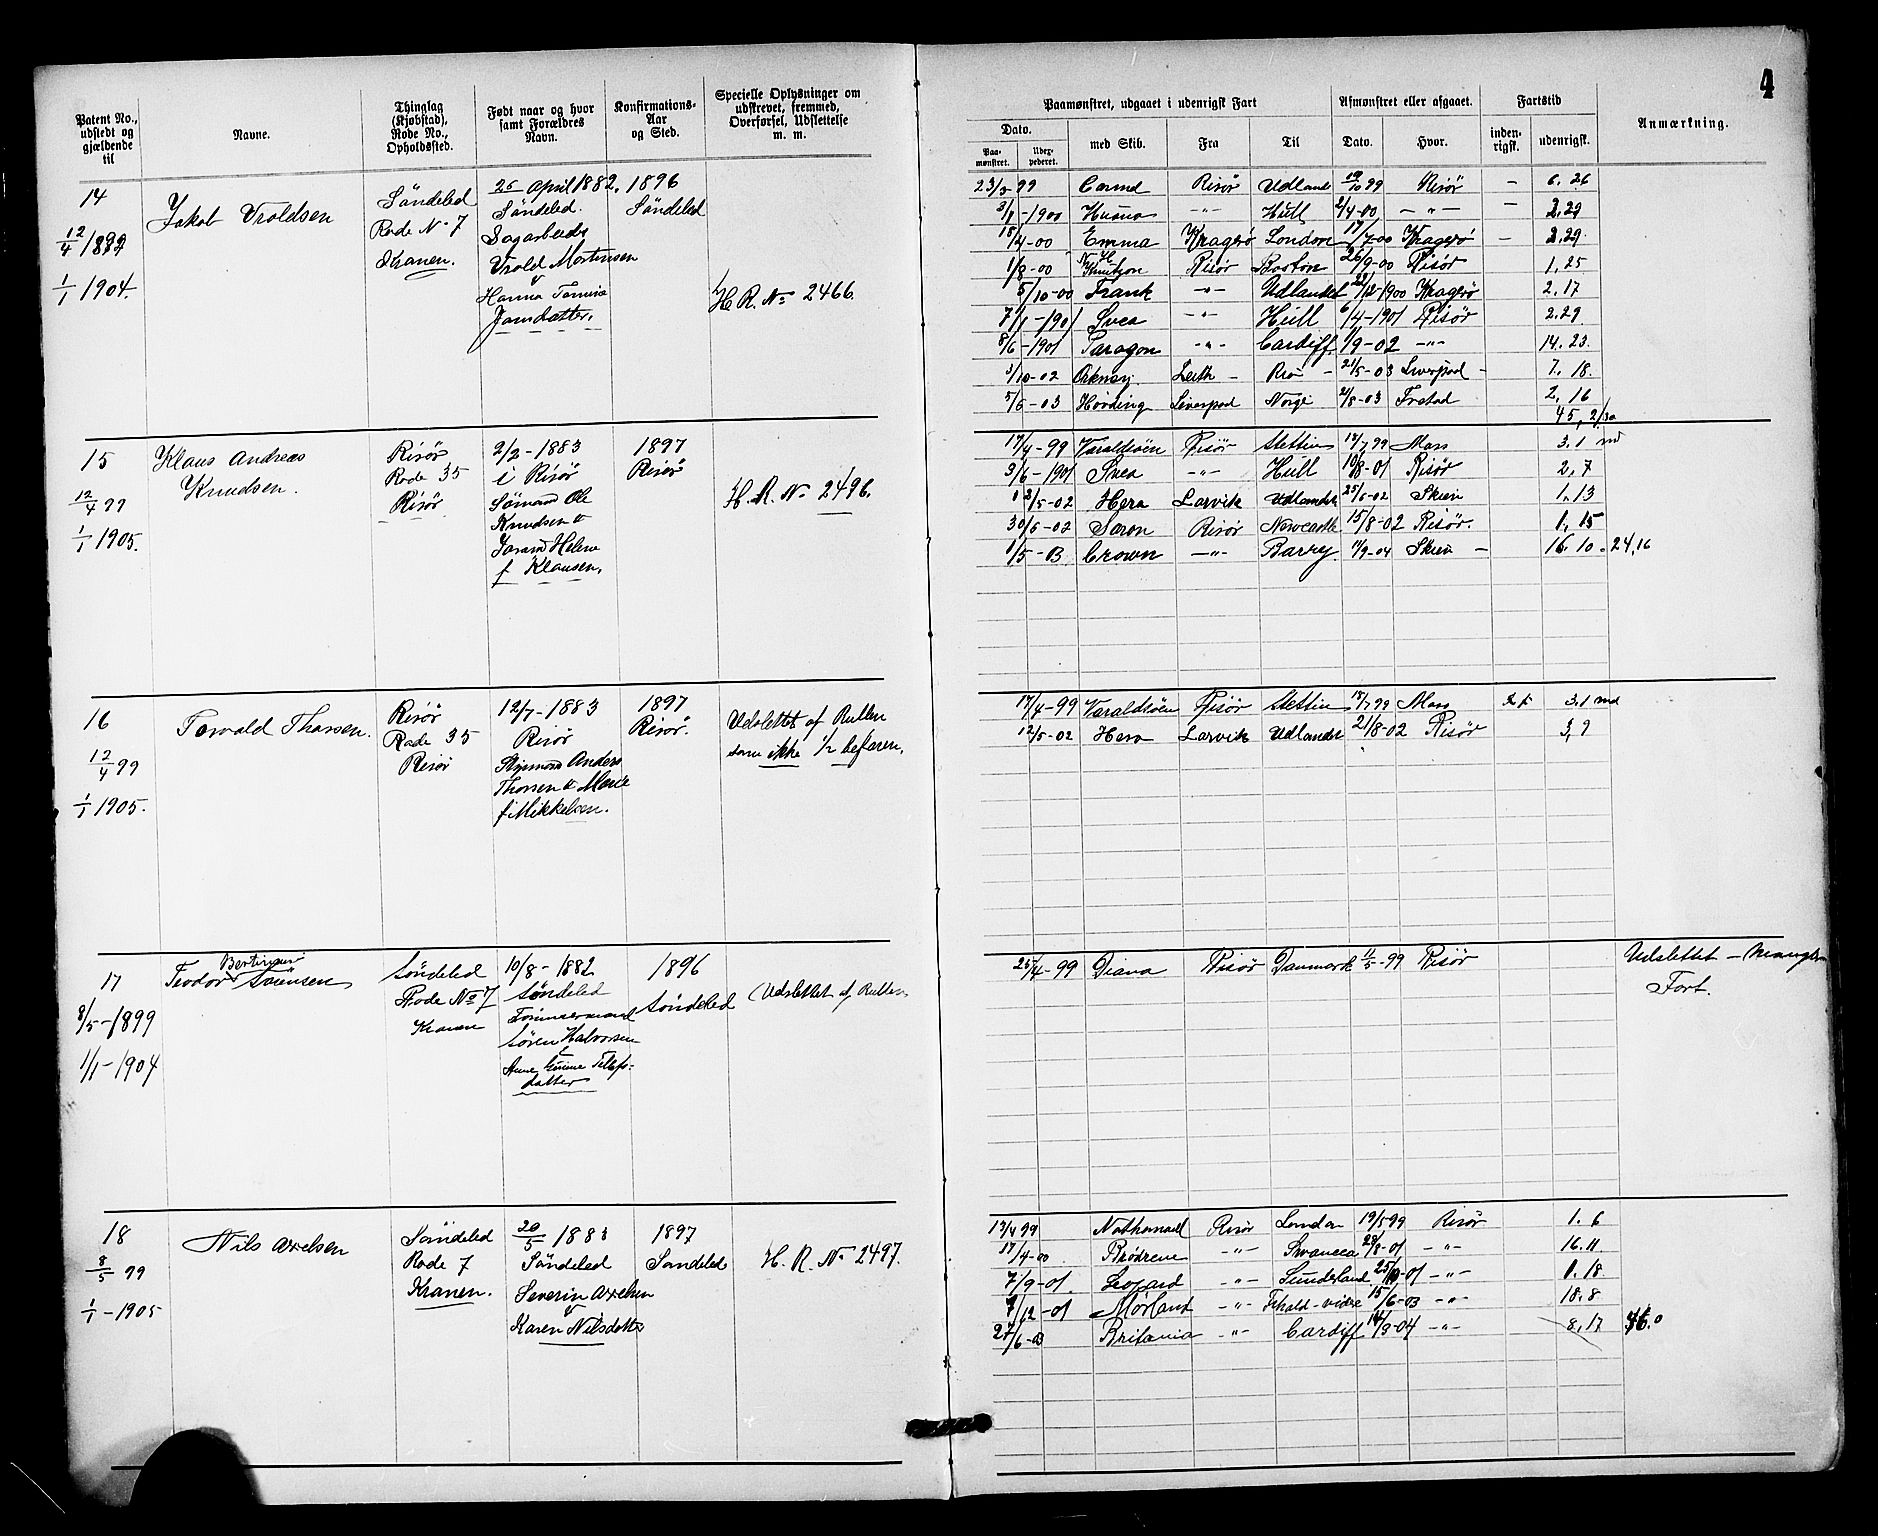 4
Patent No., udstedt og gjældende til
Navne.
Thinglag (Kjøbstad), Rode No., Opholdssted.
Født naar og hvor samt Forældres Navn.
Konfirmations-Aar og Sted.
Specielle Oplysninger om udskrevet, fremmed, Overførsel, Udslettelse m. m.
Paamønstret, udgaaet i udenrigsk Fart
Afmønstret eller afgaaet.
Fartstid
Anmærkning.
Dato.
Paa-mønstret.
med Skib.
Fra
Til
Dato.
Hvor.
inden-rigsk.
udenrigsk.
14
12/4 1899
1/1 1904.
Jakob Vroldsen
Søndeled
Rode No 7
Kranen.
25 April 1882.
Søndeled.
Sagarbeids
Vrold Mortensen
Hanna Tomine
Jansdatter.
1896
Søndeled
H. R. No 2466.
23/3 99 Risør Udland 19/10 99 Risør – 6. 26
3/1 -1900 -"- Hull 2/4-00 -"- – 2.29
18/4-00 Emma Kragerø London 17/7 00 Kragerø – 2.29
1/8-00 N. H. Knutzon Risør Boston 26/9-00 Risør 1. 25
5/10-00 Frank -"- Udlandet 1900 Kragerø 2. 17
7/1-1901 Svea -"- Hull 6/4-1901 Risør 2.29
8/6-1901 Paragon -"- Cardiff 1/9-02 -"- 14. 23.
3/10-02 Orkney Leith – Rio – 21/5-03 Liverpool – 7. 18.
5/6-03 Høvding Liverpool Norge 21/8-03 Frstad 2, 16
45, 2/30
15
12/4 99
1/1 1905.
Klaus Andreas
Knudsen.
Risør
Rode 35
Risør
2/2-1883
i Risør
Sømand Ole
Knudsen &
Helene
f Klausen.
1897
Risør
H. R. No 2496.
17/4-99 Varaldsöen Risør Stettin 18/7 99 Mass 3. 1 md
3/6-1901 Svea -"- Hull 10/8-01 Risør 2, 7
12/5-02 Hera Larvik Udlandet 25/6-02 Skien 1, 13
30/6-02 Saron Risør Newcastle 15/8-02 Risør. 1, 15
1/5-03 Crown -"- Barry 11/9-04 Skien – 16. 10 – 24, 16
16
12/4 99
1/1 1905.
Torvald Thorsen.
Risør
Rode 35
Risør
12/7-1883
Risør
Anders
Thorsen & Marie
f Mikkelsen.
1897
Risør.
Udslettet af Rullen
som ikke 1/2 befaren.
17/4-99 Varaldsöen Risør Stettin 18/7 99 Mass 3. 1 md
12/5-02 Hera Larvik Udlandet 21/8-02 Risør 3, 9
17
8/5-1899
1/1-1904
Teodor Bertinius Sørensen
Søndeled
Rode No 7
Kranen
10/8-1882
Søndeled
Tømmermand
Søren Halvorsen
&
Anne Gurine Tellefs-
datter
1896
Søndeled
(Udslettet af Rullen
25/4-99 Diana Risør Danmark 11/5-99 Risør
Udslettet – Mangler
Fart.
18
8/5 99
1/1-1905
Nils Axelsen
Søndeled
Rode 7
Kranen.
20/5 1883
Søndeled
Severin Axelsen
&
Karen Nilsdatter
1897
Søndeled
H. R. No 2497.
13/4 99 Nathanael Risør London 19/5 99 Risør 1. 6
17/4-00 Brødrene -"- Swansea 28/8-01 -"- 16. 11
7/9-01. Leopard -"- Sunderland 25/10-01 -"- 1. 18.
7/12-01 Mørland -"- Frhald-vidre 15/6-03 -"- 18. 8
27/6-03 Britania -"- Cardiff 14/3-04 -"- 8, 17 46.0